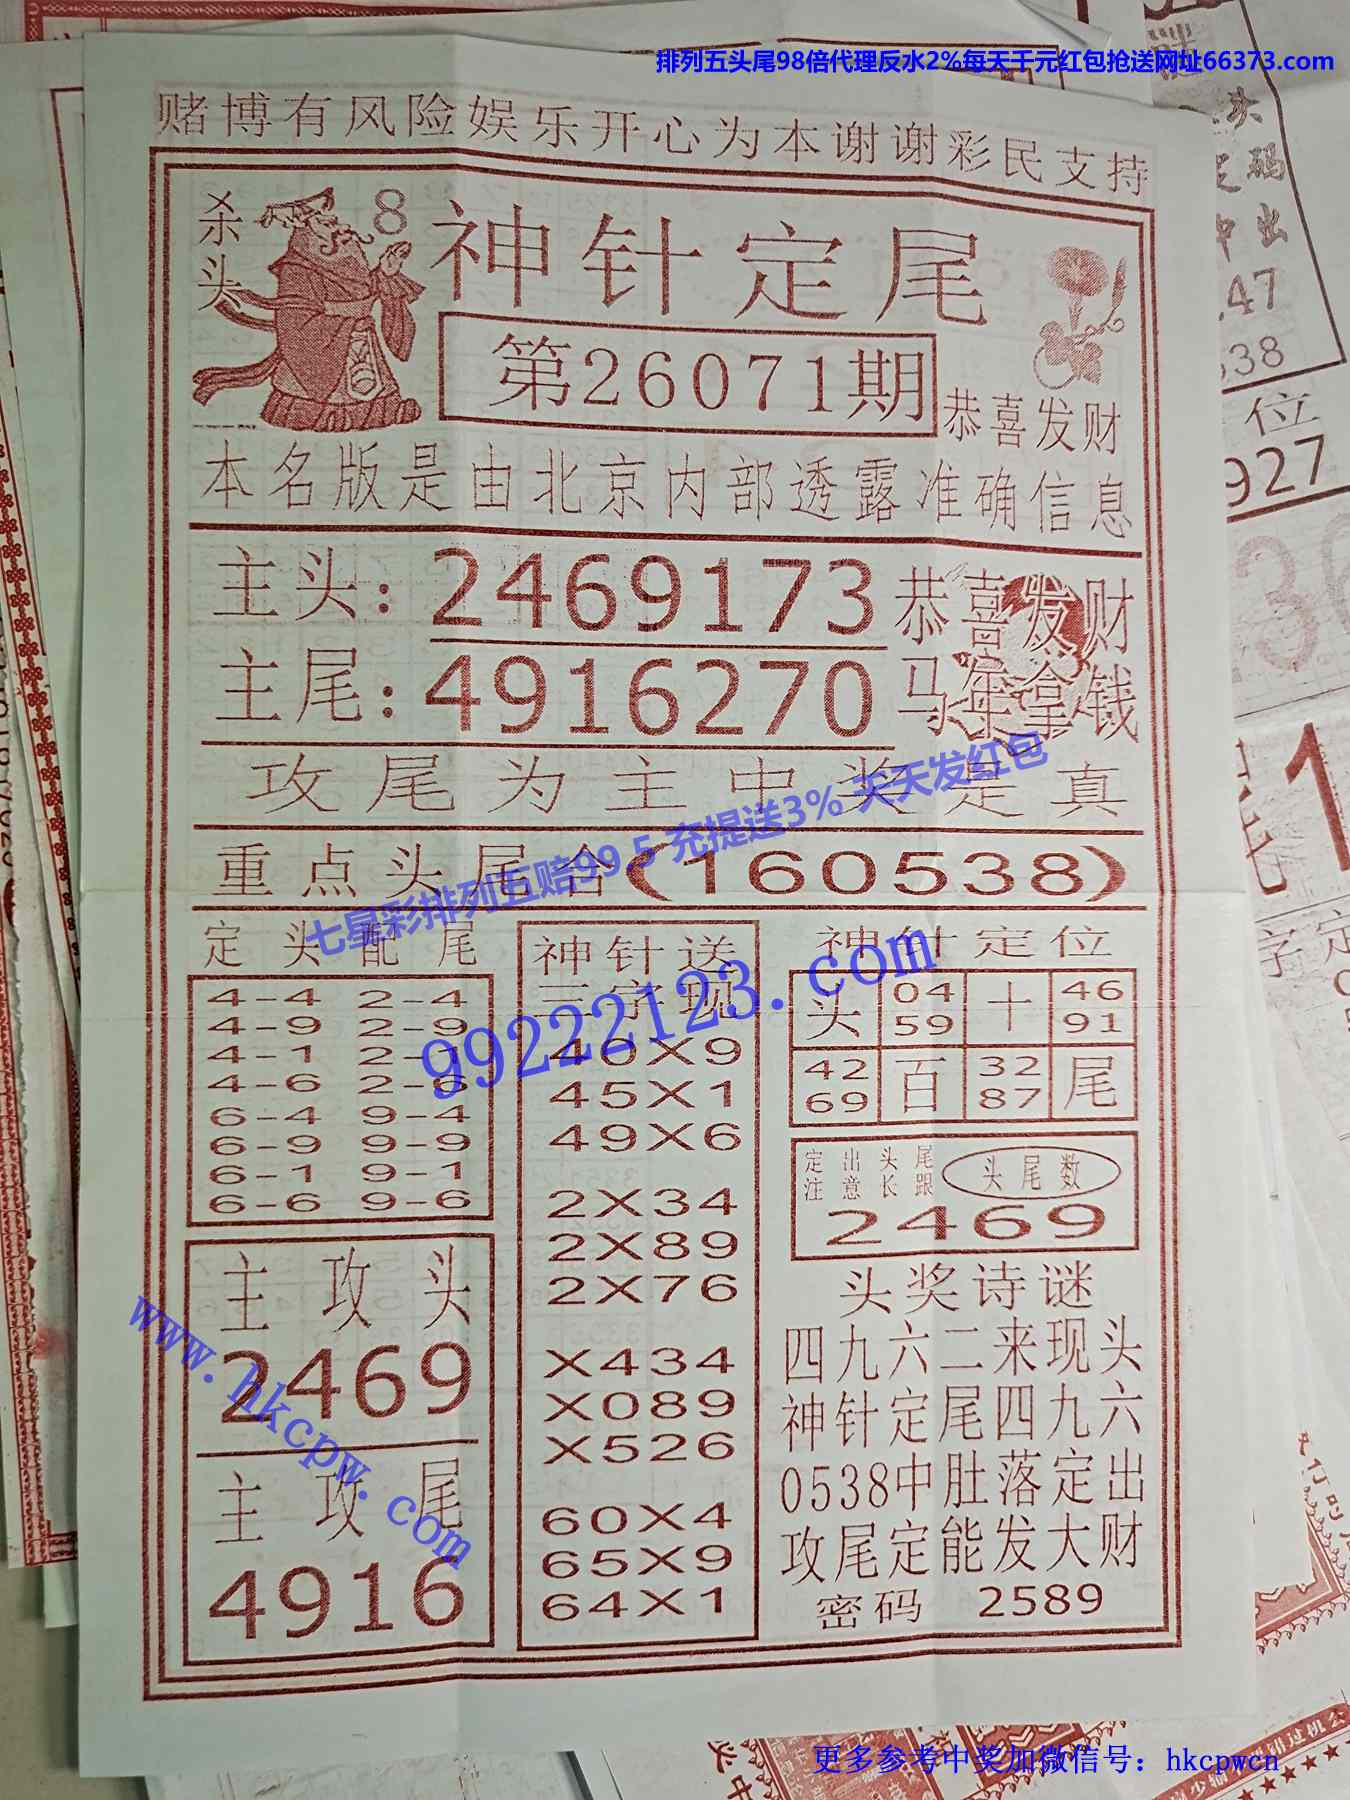 排列五头尾98倍代理反水2%每天千元红包抢送网址66373.com
赌博有风险娱乐开心为本谢谢彩民支持
杀头
8
神针定尾
第26071期
恭喜发财
本名版是由北京内部透露准确信息
主头:2469173
恭喜发财
主尾:4916270
马年拿钱
攻尾为主中奖是真
七星彩排列五赔99.5 充提送3% 天天发红包
重点头尾合(160538)
定头配尾
4-4 2-4
4-9 2-9
4-1 2-1
4-6 2-6
6-4 9-4
6-9 9-9
6-1 9-1
6-6 9-6
99222123.com
神针送
三字现
40X9
45X1
49X6
2X34
2X89
2X76
X434
X089
X526
60X4
65X9
64X1
神针定位
头 04 十 46
59 91
42 百 32 尾
69 87
定出头尾
注意长跟
头尾数
2469
主攻头
2469
主攻尾
4916
www.hkcpw.com
头奖诗谜
四九六二来现头
神针定尾四九六
0538中肚落定出
攻尾定能发大财
密码 2589
位
927
更多参考中奖加微信号: hkcpwcn